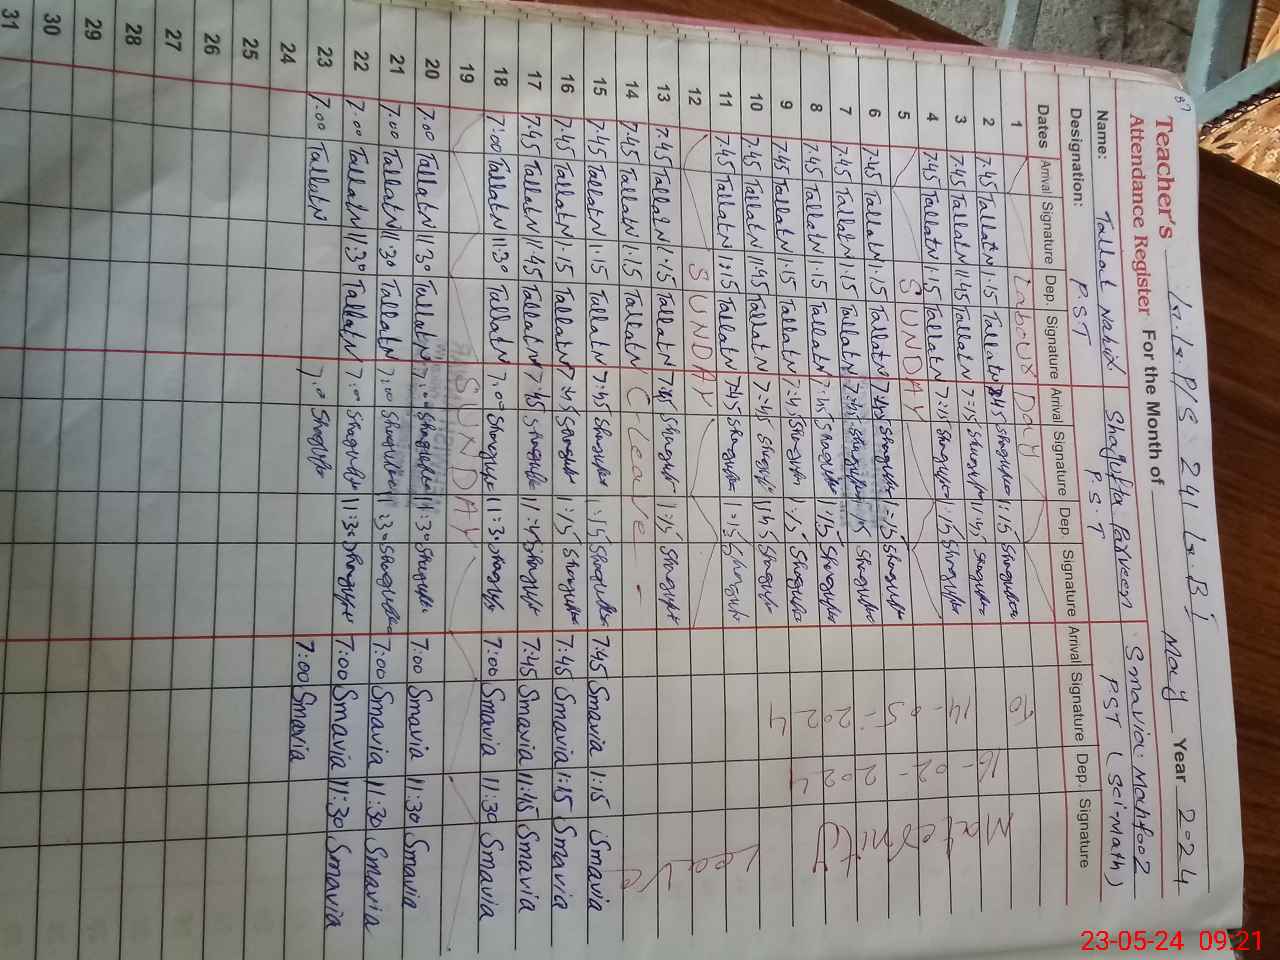 87
Teacher's G.G. P/S 241 G.B
Attendance Register For the Month of May Year 2024
Name: Tallat Nahid Shagufta Parveen Smavia Mahfooz
Designation: P.ST P.S.T PST (Sci-Math)
Dates Arrival Signature Dep. Signature Arrival Signature Dep. Signature Arrival Signature Dep. Signature
1 Labour Day
2 7.45 TallatN 1.15 TallatN 7:45 Shagufta 1:15 Shagufta
3 7.45 TallatN 11.45 TallatN 7:15 Shagufta 11:45 Shagufta
4 7.45 TallatN 1.15 TallatN 7:15 Shagufta 1:15 Shagufta
5 SUNDAY
6 7.45 TallatN 1.15 TallatN 7:45 Shagufta 1:15 Shagufta
7 7.45 TallatN 1.15 TallatN 7:45 Shagufta 1:15 Shagufta
8 7.45 TallatN 1.15 TallatN 7:45 Shagufta 1:15 Shagufta
9 7.45 TallatN 1.15 TallatN 7:45 Shagufta 1:15 Shagufta
10 7.45 TallatN 11.45 TallatN 7:45 Shagufta 11:45 Shagufta
11 7.45 TallatN 1.15 TallatN 7:45 Shagufta 1:15 Shagufta
12 SUNDAY
13 7.45 TallatN 1.15 TallatN 7:45 Shagufta 1:15 Shagufta
14 7.45 TallatN 1.15 TallatN C-leave-
15 7.45 TallatN 1.15 TallatN 7:45 Shagufta 1:15 Shagufta 7.45 Smavia 1:15 Smavia
16 7.45 TallatN 1.15 TallatN 7:45 Shagufta 1:15 Shagufta 7:45 Smavia 1:15 Smavia
17 7.45 TallatN 11.45 TallatN 7:45 Shagufta 11:45 Shagufta 7:45 Smavia 11:45 Smavia
18 7:00 TallatN 11:30 TallatN 7:00 Shagufta 11:30 Shagufta 7:00 Smavia 11:30 Smavia
19 SUNDAY
20 7.00 TallatN 11:30 TallatN 7:00 Shagufta 11:30 Shagufta 7:00 Smavia 11:30 Smavia
21 7.00 TallatN 11.30 TallatN 7:00 Shagufta 11:30 Shagufta 7:00 Smavia 11:30 Smavia
22 7.00 TallatN 11:30 TallatN 7:00 Shagufta 11:30 Shagufta 7:00 Smavia 11:30 Smavia
23 7.00 TallatN 7:00 Shagufta 7:00 Smavia
24
25
26
27
28
29
30
31
16-02-2024
To
14-05-2024
Maternity
Leave
23-05-24 09:21